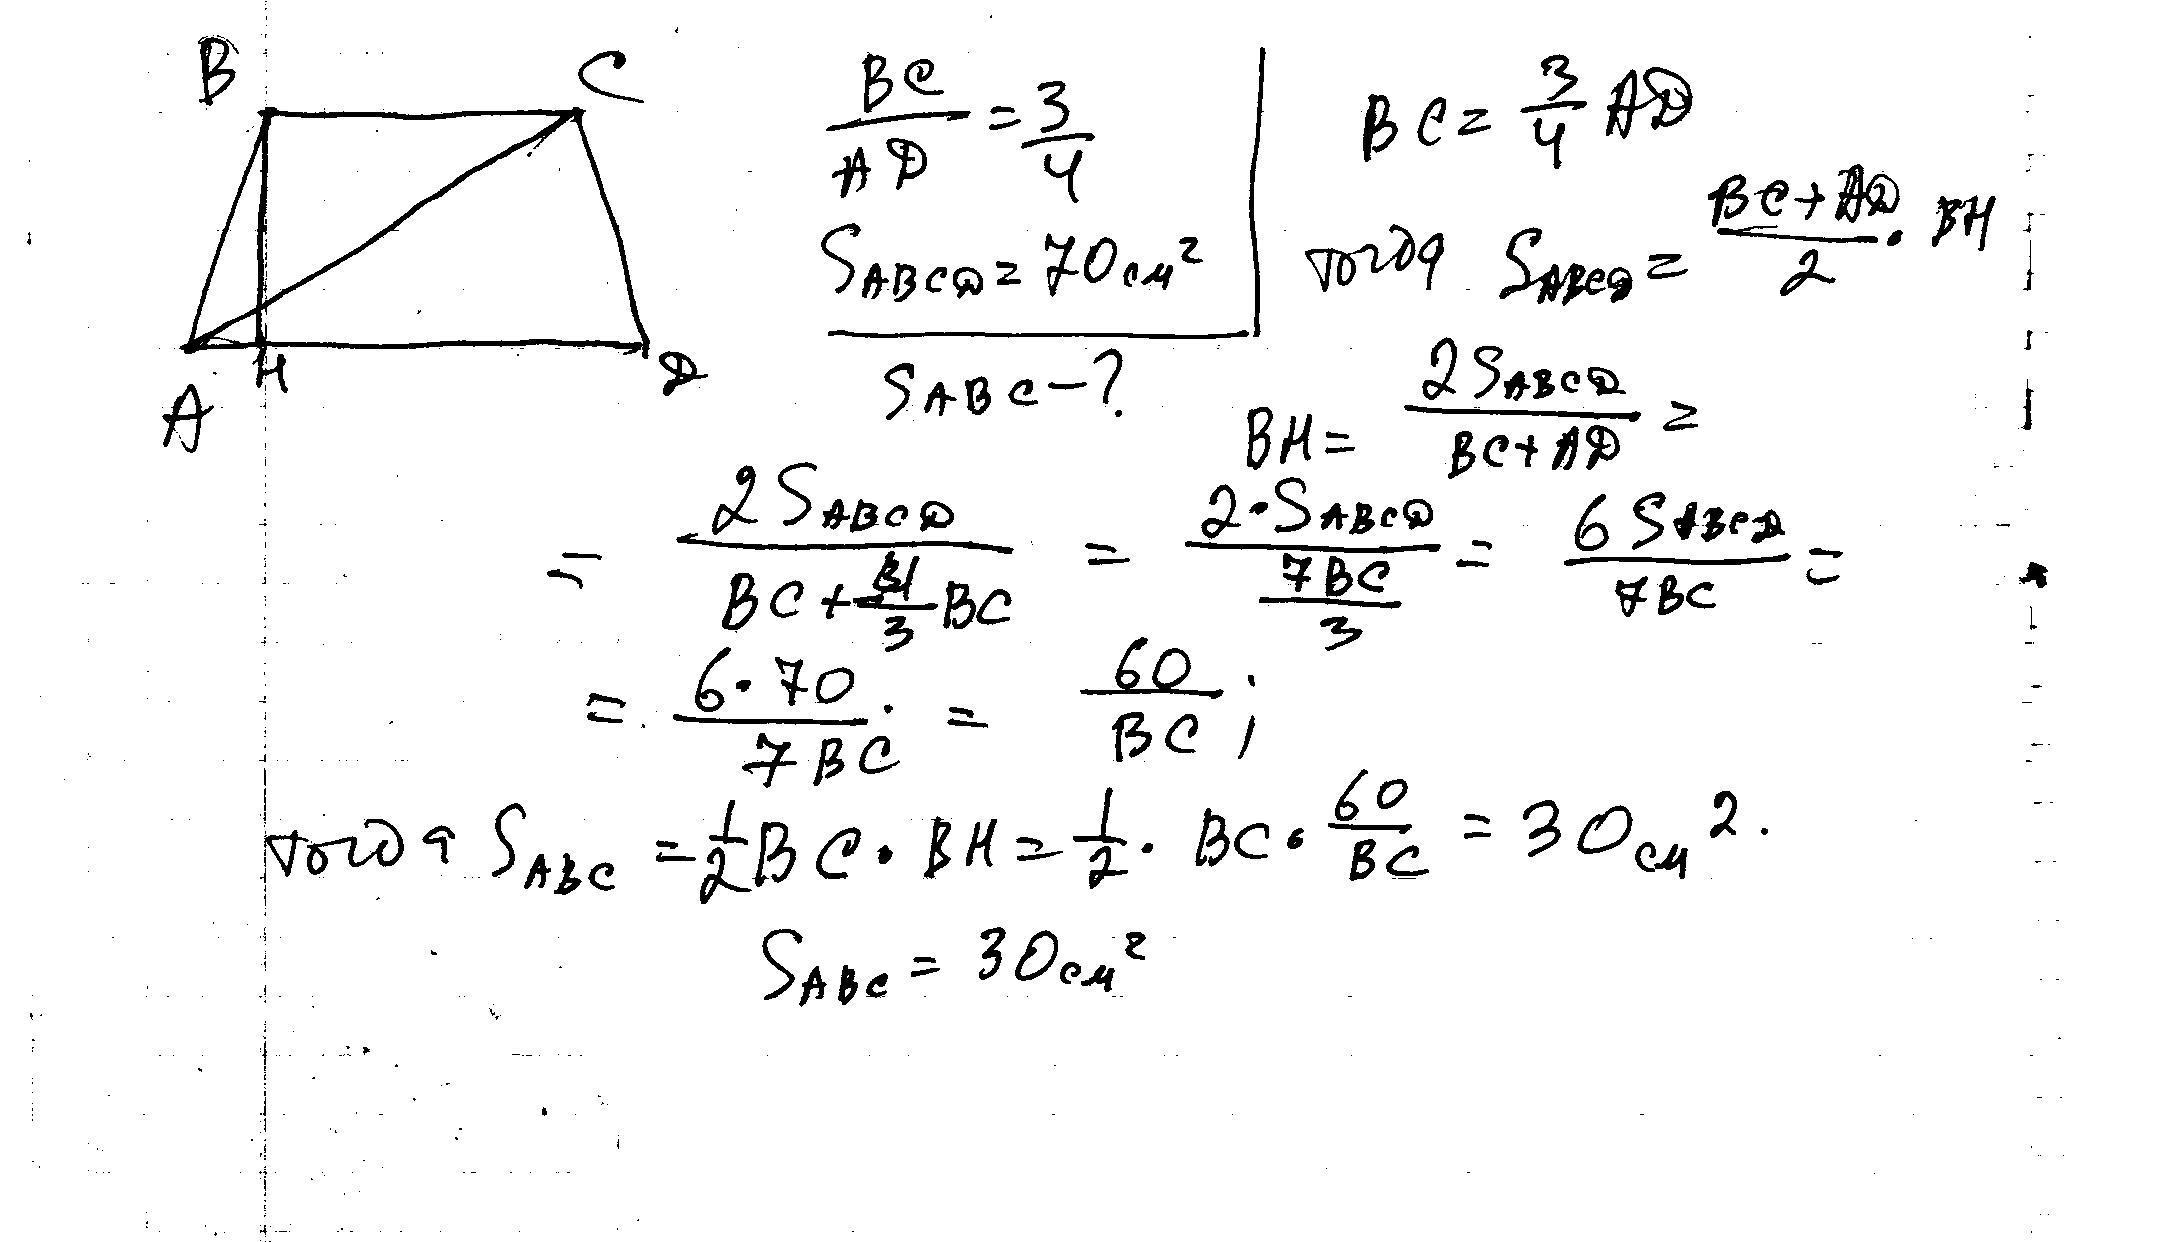 B C
A H D
BC/AD = 3/4
S_ABCD = 70 см²
S_ABC - ?
BC = 3/4 AD
тогда S_ABCD = (BC + AD)/2 · BH
BH = 2S_ABCD/(BC + AD) =
= 2S_ABCD/(BC + 4/3 BC) = 2·S_ABCD/(7BC/3) = 6S_ABCD/7BC =
= 6·70/7BC = 60/BC ;
тогда S_ABC = 1/2 BC · BH = 1/2 · BC · 60/BC = 30 см².
S_ABC = 30 см²